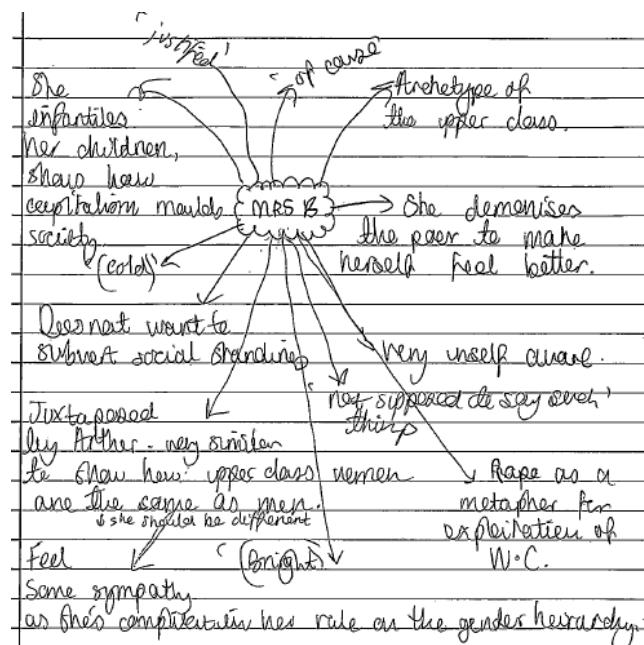 'justified'
'of cause'
Archetype of
the upper class.
She
infantiles
her children,
shows how
capitalism moulds
society
MRS B
She demonises
the poor to make
herself feel better.
(cold)
Does not want to
subvert social standings
very unself aware.
'not supposed to say such'
things
Juxtaposed
by Arther - very similar
to show how upper class women
are the same as men.
↓ she should be different
Rape as a
metapher for
exploitation of
W.C.
Feel
(Bright)
Some sympathy
as she's in her rule on the gender heirarchy.